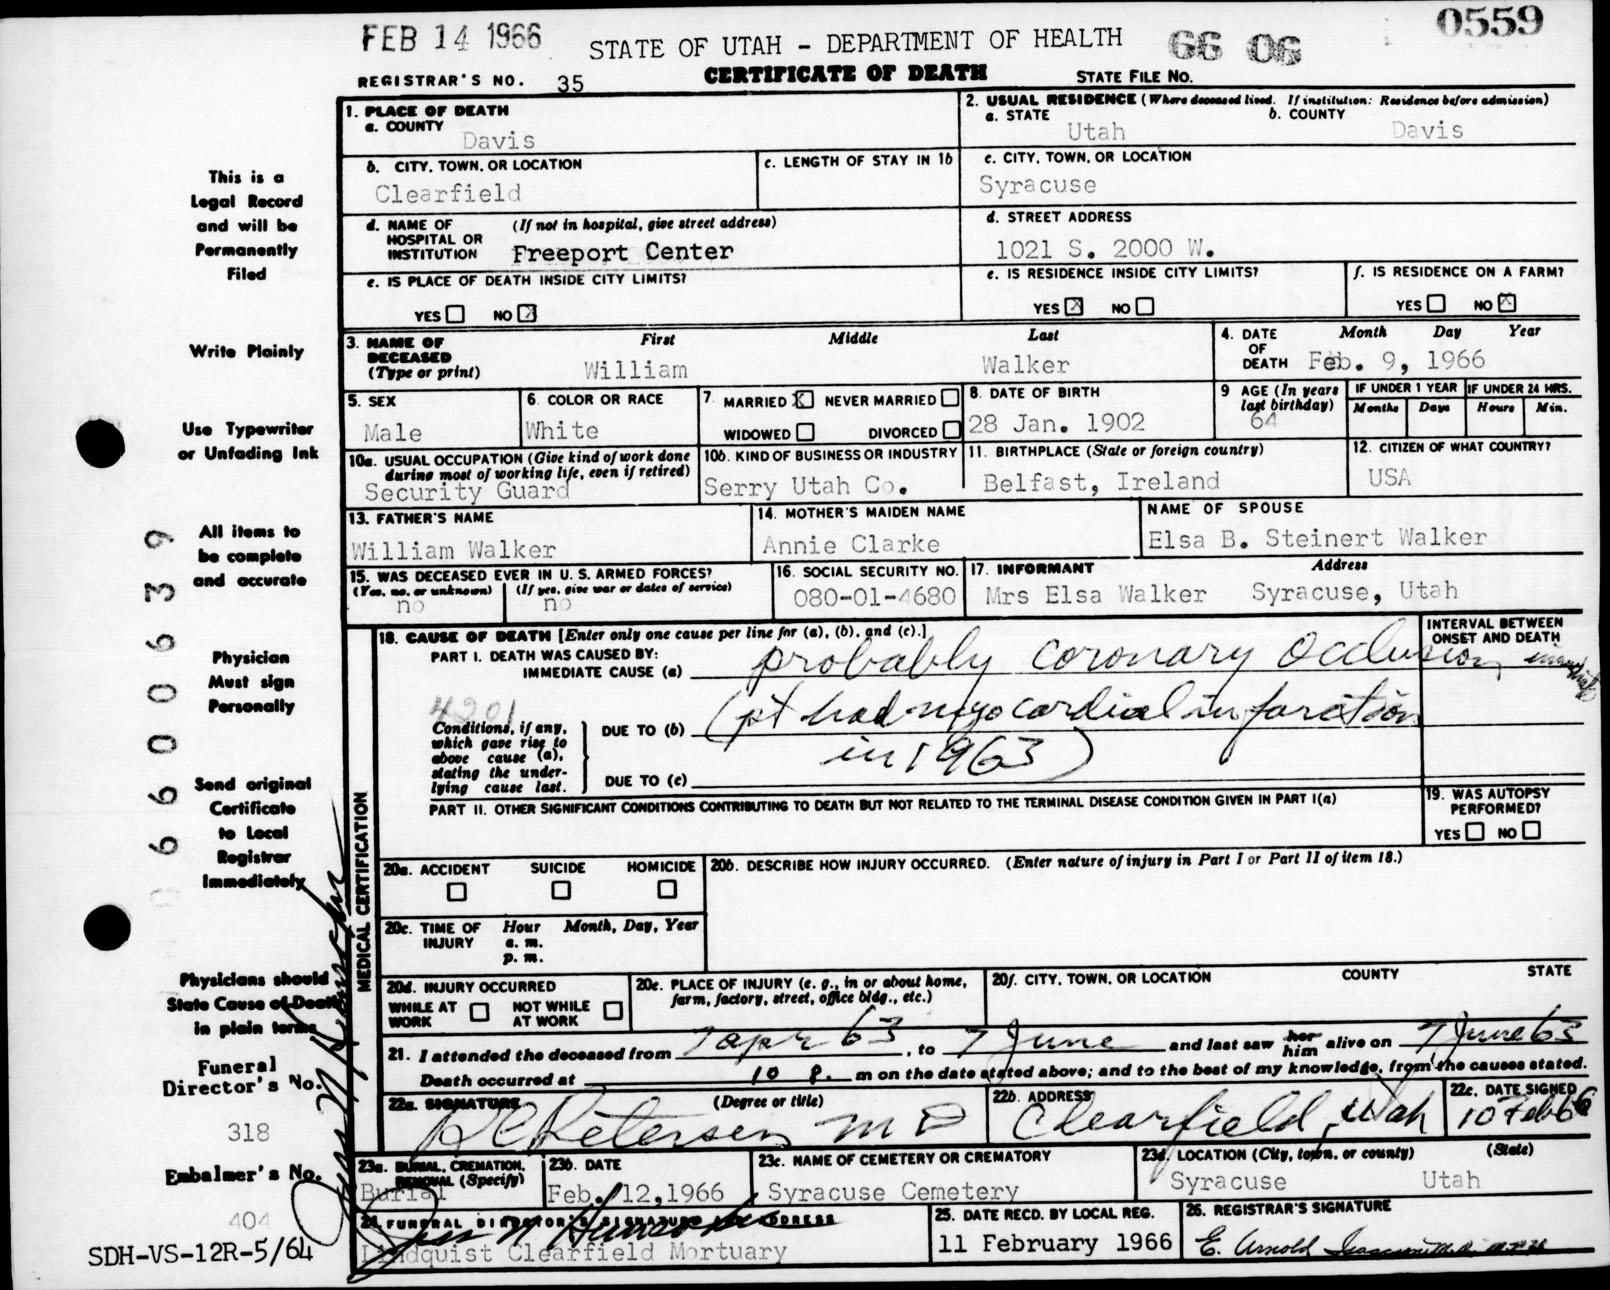 FEB 14 1966
STATE OF UTAH - DEPARTMENT OF HEALTH
66 06
0559
REGISTRAR'S NO. 35
CERTIFICATE OF DEATH
STATE FILE NO.
This is a
Legal Record
and will be
Permanently
Filed
Write Plainly
Use Typewriter
or Unfading Ink
All items to
be complete
and accurate
Physician
Must sign
Personally
Send original
Certificate
to Local
Registrar
Immediately
Physicians should
State Cause of Death
in plain terms
Funeral
Director's No.
318
Embalmer's No.
404
SDH-VS-12R-5/64
660006339
1. PLACE OF DEATH
a. COUNTY
Davis
2. USUAL RESIDENCE (Where deceased lived. If institution: Residence before admission)
a. STATE
Utah
b. COUNTY
Davis
b. CITY, TOWN, OR LOCATION
Clearfield
c. LENGTH OF STAY IN 1b
c. CITY, TOWN, OR LOCATION
Syracuse
d. NAME OF HOSPITAL OR INSTITUTION
(If not in hospital, give street address)
Freeport Center
d. STREET ADDRESS
1021 S. 2000 W.
e. IS PLACE OF DEATH INSIDE CITY LIMITS?
YES NO X
e. IS RESIDENCE INSIDE CITY LIMITS?
YES X NO
f. IS RESIDENCE ON A FARM?
YES NO X
3. NAME OF DECEASED (Type or print)
First Middle Last
William Walker
4. DATE OF DEATH
Month Day Year
Feb. 9, 1966
5. SEX
Male
6. COLOR OR RACE
White
7. MARRIED X NEVER MARRIED
WIDOWED DIVORCED
8. DATE OF BIRTH
28 Jan. 1902
9 AGE (In years last birthday)
64
IF UNDER 1 YEAR
Months Days
IF UNDER 24 HRS.
Hours Min.
10a. USUAL OCCUPATION (Give kind of work done during most of working life, even if retired)
Security Guard
10b. KIND OF BUSINESS OR INDUSTRY
Serry Utah Co.
11. BIRTHPLACE (State or foreign country)
Belfast, Ireland
12. CITIZEN OF WHAT COUNTRY?
USA
13. FATHER'S NAME
William Walker
14. MOTHER'S MAIDEN NAME
Annie Clarke
NAME OF SPOUSE
Elsa B. Steinert Walker
15. WAS DECEASED EVER IN U. S. ARMED FORCES?
(Yes, no, or unknown)
no
(If yes, give war or dates of service)
no
16. SOCIAL SECURITY NO.
080-01-4680
17. INFORMANT Address
Mrs Elsa Walker Syracuse, Utah
MEDICAL CERTIFICATION
18. CAUSE OF DEATH [Enter only one cause per line for (a), (b), and (c).]
INTERVAL BETWEEN ONSET AND DEATH
PART I. DEATH WAS CAUSED BY:
IMMEDIATE CAUSE (a) probably coronary occlusion, immediate
4201
Conditions, if any, which gave rise to above cause (a), stating the underlying cause last.
DUE TO (b) (pt had myocardial infarction
in 1963)
DUE TO (c)
PART II. OTHER SIGNIFICANT CONDITIONS CONTRIBUTING TO DEATH BUT NOT RELATED TO THE TERMINAL DISEASE CONDITION GIVEN IN PART I(a)
19. WAS AUTOPSY PERFORMED?
YES NO
20a. ACCIDENT SUICIDE HOMICIDE
20b. DESCRIBE HOW INJURY OCCURRED. (Enter nature of injury in Part I or Part II of item 18.)
20c. TIME OF INJURY
Hour Month, Day, Year
a. m.
p. m.
20d. INJURY OCCURRED
WHILE AT WORK NOT WHILE AT WORK
20e. PLACE OF INJURY (e. g., in or about home, farm, factory, street, office bldg., etc.)
20f. CITY, TOWN, OR LOCATION COUNTY STATE
21. I attended the deceased from 7 apr 63, to 7 June and last saw her him alive on 7 June 63
Death occurred at 10 P. m on the date stated above; and to the best of my knowledge, from the causes stated.
22a. SIGNATURE (Degree or title)
Petersen M D
22b. ADDRESS
Clearfield, Utah
22c. DATE SIGNED
10 Feb 66
23a. BURIAL, CREMATION, REMOVAL (Specify)
Burial
23b. DATE
Feb. 12, 1966
23c. NAME OF CEMETERY OR CREMATORY
Syracuse Cemetery
23d. LOCATION (City, town, or county) (State)
Syracuse Utah
24. FUNERAL DIRECTOR'S SIGNATURE ADDRESS
Lindquist Clearfield Mortuary
25. DATE RECD. BY LOCAL REG.
11 February 1966
26. REGISTRAR'S SIGNATURE
E. Arnold